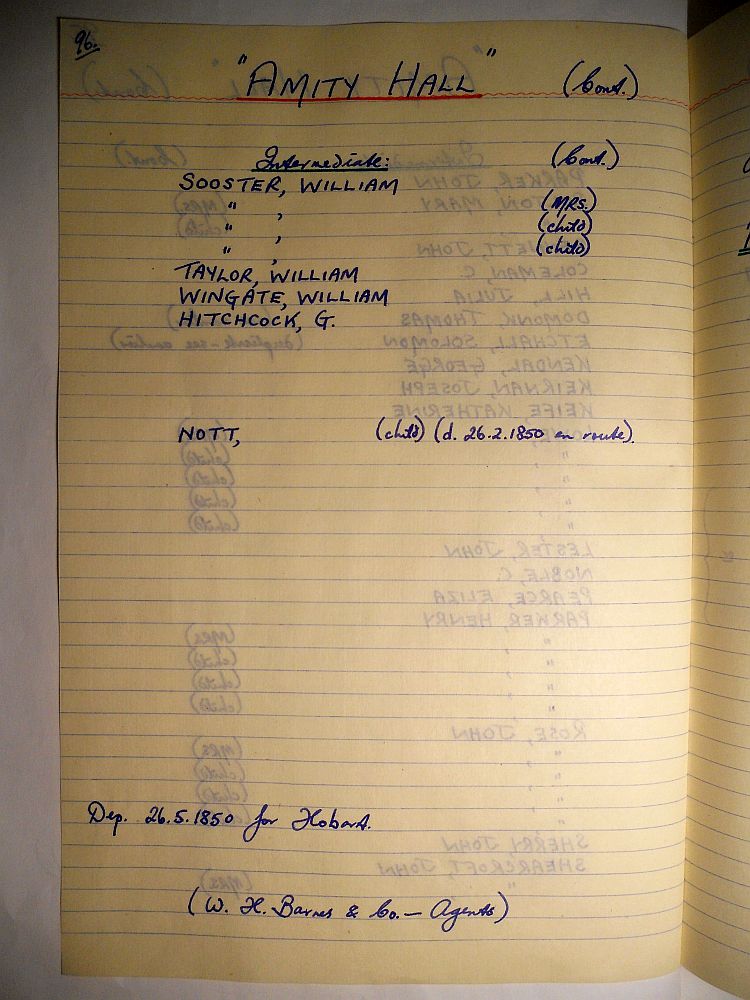 96.
"AMITY HALL" (Cont.)
Intermediate: (Cont.)
SOOSTER, WILLIAM
" , (MRS.)
" , (child)
" , (child)
TAYLOR, WILLIAM
WINGATE, WILLIAM
HITCHCOCK, G.
NOTT, (child) (d. 26.2.1850 en route).
Dep. 26.5.1850 for Hobart.
(W. H. Barnes & Co. — Agents)